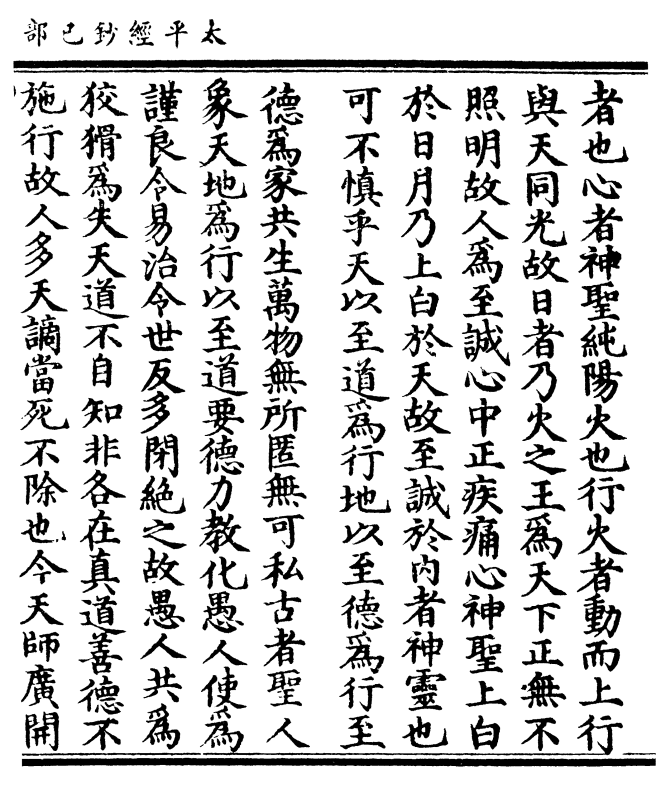 太平經鈔已部
者也心者神聖純陽火也行火者動而上行
與天同光故日者乃火之王爲天下正無不
照明故人爲至誠心中正疾痛心神聖上白
於日月乃上白於天故至誠於内者神靈也
可不慎乎天以至道爲行地以至德爲行至
德爲家共生萬物無所匿無可私古者聖人
象天地爲行以至道要德力教化愚人使爲
謹良令易治今世反多閉絶之故愚人共爲
狡猾爲失天道不自知非各在真道善德不
施行故人多天謫當死不除也今天師廣開